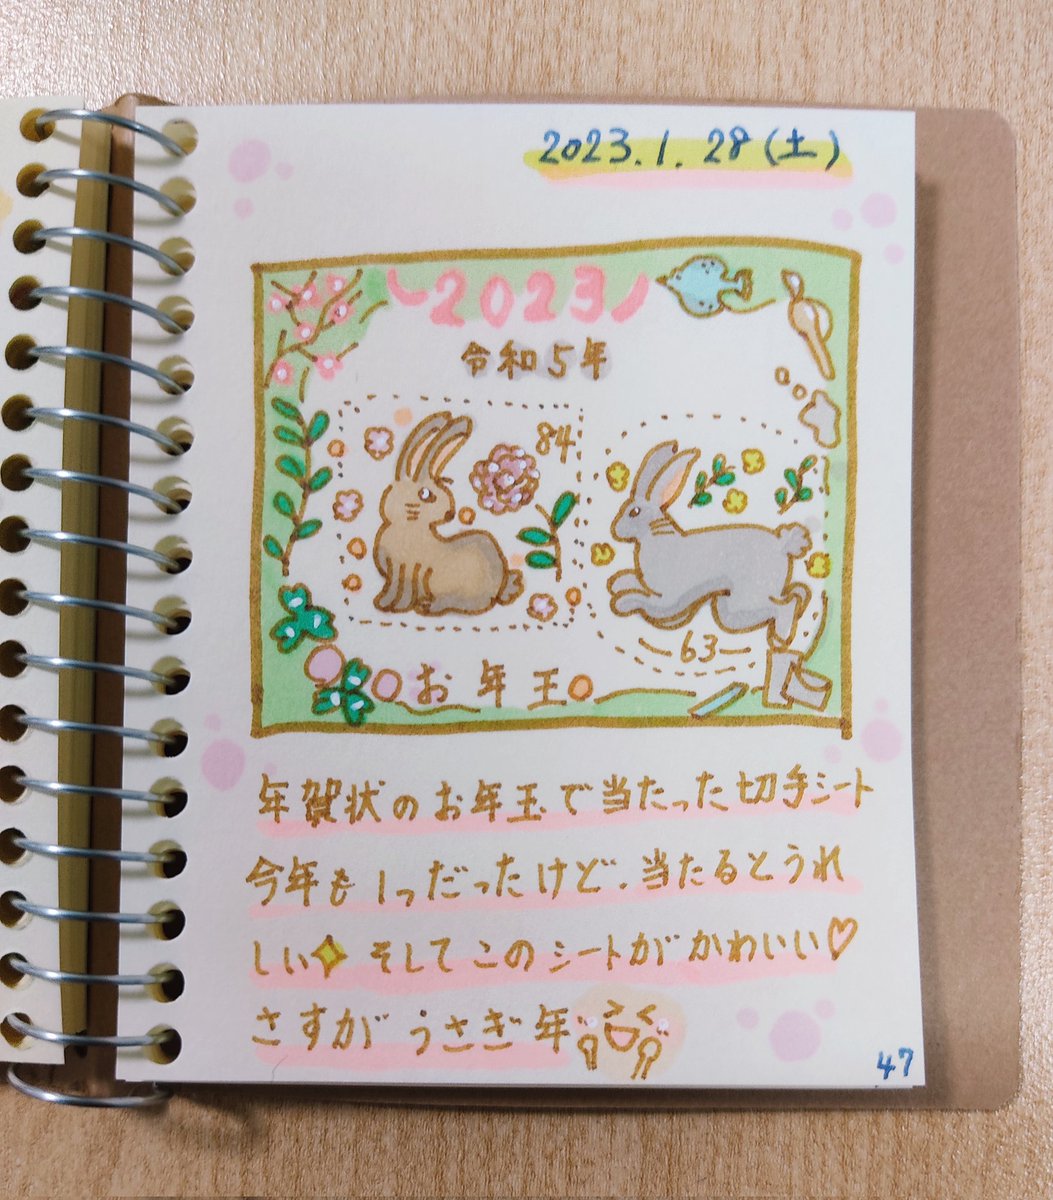 2023.1.28(土)
2023
令和5年
84
63
お年玉
年賀状のお年玉で当たった切手シート
今年も1つだったけど、当たるとうれ
しい そしてこのシートがかわいい♡
さすが うさぎ年
47